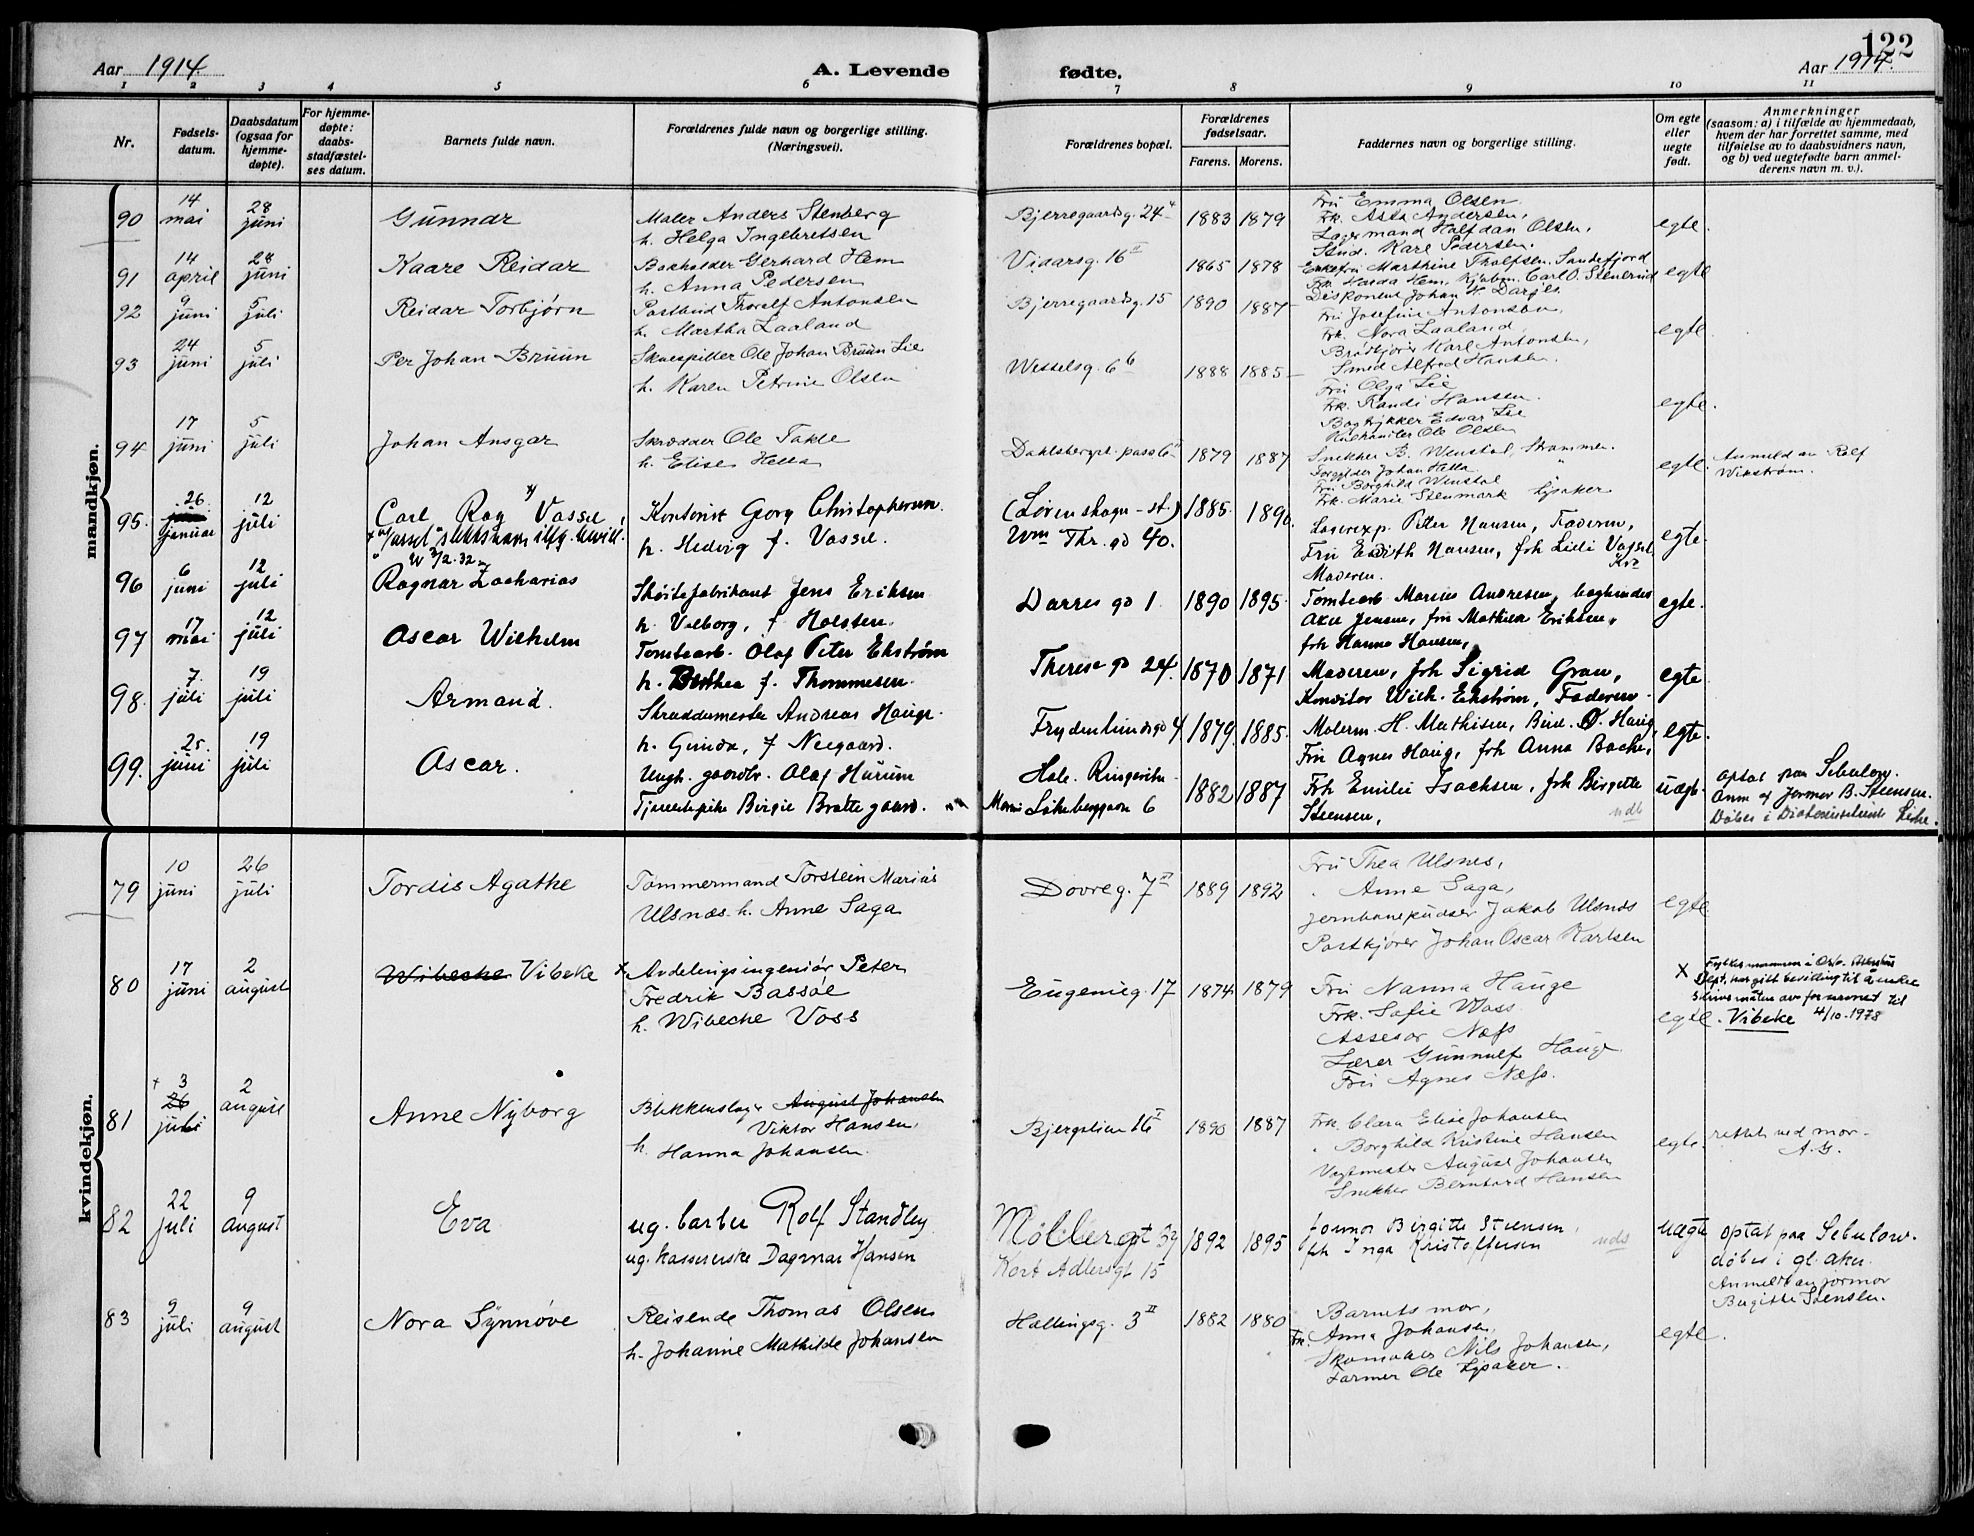 122
Aar 1914.
A. Levende fødte.
Aar 1914.
1 2 3 4 5 6 7 8 9 10 11
Nr.
Fødsels-
datum.
Daabsdatum
(ogsaa for
hjemme-
døpte).
For hjemme-
døpte:
daabs-
stadfæstel-
ses datum.
Barnets fulde navn.
Forældrenes fulde navn og borgerlige stilling.
(Næringsvei).
Forældrenes bopæl.
Forældrenes
fødselsaar.
Farens. Morens.
Faddernes navn og borgerlige stilling.
Om egte
eller
uegte
født.
Anmerkninger
(saasom: a) i tilfælde av hjemmedaab,
hvem der har forrettet samme, med
tilføielse av to daabsvidners navn,
og b) ved uegtefødte barn anmel-
derens navn m. v.).
mandkjøn.
90
14
mai
28
juni
Gunnar
Maler Anders Stenberg
h. Helga Ingebretsen
Bjerregaardsg. 24
1883 1879
Fru Emma Olsen
Frk. Asta Andersen,
Lagermand Halfdan Olsen,
Stud. Karl Pedersen.
egte.
91
14
april
28
juni
Kaare Reidar
Bokholder Gerhard Hem
h. Anna Pedersen
Vidarsg. 16 II
1865 1878
Enkefru Marthine Tholfsen, Sandefjord
Frk. Hem, Carl O. Stenerud
Disponent Johan
egte
92
9
juni
5
juli
Reidar Torbjørn
Postbud Thoralf Antonsen
h. Martha Laaland
Bjerregaardsg. 15
1890 1887
Fru Josefine Antonsen,
Frk. Nora Laaland,
Brødkjører Karl Antonsen,
Smed Alfred Hansen.
egte.
93
24
juni
5
juli
Per Johan Bruun
Skuespiller Ole Johan Bruun Lie
h. Karen Petrine Olsen
Wesselsg. 6 b
1888 1885
Fru Olga Lie
Frk. Randi Hansen.
Bogtrykker Edvar Lie
Ole Olsen
egte.
94
17
juni
5
juli
Johan Ansgar
Skrædder Ole Takle
h. Elise Hella
Dahlsbergst.
1879 1887
Snekker B. Wenstøl, Strømmen.
Johan Hella
Fru Borghild Wenstøl
Frk. Marie Stenmark Lysaker
egte.
Anmeld av Rolf
Wikstrøm.
95.
26.
januar
12
juli
Carl Roy Vassel
h. Hedvig f. Vassel.
Kontorist Georg Christophersen.
(Lørenskogn - st.)
Wm Thr. gd 40.
1885. 1890.
Lagerexp. Peter Hansen, Faderen,
Fru Edith Hansen, frk Lilli Vassel,
Moderen.
egte.
96
6
juni
12
juli
Ragnar Zacharias
Skøitefabrikant Jens Eriksen
h. Valborg, f Holsten.
Darres gd 1
1890 1895.
Tomtearb. Marius Andresen, bogbinder
Axel Jensen, fru Mathilde Eriksen,
frk Hanna Hansen,
egte.
97
17
mai
12
juli
Oscar Wilhelm
Tomtearb. Olaf Peter Ekstrøm
h. Berthea f. Thommesen.
Therese gd 24.
1870 1871
Moderen, frk Sigrid Gran,
Konditor Wilh. Ekstrøm, Faderen.
egte
98.
7.
juli
19
juli
Armand.
Skreddermester Andreas Haug.
h. Gunda, f Neegaard.
Frydenlundsgd 4
1879. 1885.
Malerm. H. Mathisen, Bud. O. Haug,
Fru Agnes Haug, frk Anna Bache,
egte.
99.
25.
juni
19
juli
Oscar.
Ungk. gaardbr. Olaf Hurum
Tjenestepike Birgit Brattegaard.
Hole. Ringerike.
6
1882 1887
Frk Emilie Isachsen, frk Birgitte
Steensen,
udb
uegte.
optat paa Sebulon.
Anm af jormor B. Steensen.
kvindekjøn.
79
10
juni
26
juli
Tordis Agathe
Tømmermand Torstein Marius
Ulsnæs. h. Anne Saga
Dovreg. 7 II
1889 1892
Fru Thea Ulsnes,
" Anne Saga,
Jernbanepudser Jakob Ulsnæs
Postkjører Johan Oscar Karlsen
egte
80
17
juni
2
august
Wibecke Vibeke x
Avdelingsingeniør Peter
Fredrik Bassøe
h. Wibecke Voss
Eugenieg. 17
1874. 1879
Fru Nanna Hauge
Frk. Sofie Woss
Assesor Næss
Lærer Gunnulf Hauge
Fru Agnes Næss.
egte.
X Fylkesmannen i Oslo, Akershus
Dept. har gitt bevilling til å endre
skrivemåten av fornavnet til
Vibeke 4/10-1978
81
+ 3
26
juli
2
august
Anne Nyborg
Blikkenslager August Johansen
Viktor Hansen,
h. Hanna Johansen.
Bjergslien 16 I
1890 1887
Frk. Clara Elise Johansen
" Borghild Kristine Hansen
Vogtmester August Johansen
Snekker Berntard Hansen
egte.
rettet ved mor.
82
22
juli
9
august
Eva
ug. barber Rolf Standley
ug. kassererske Dagmar Hansen
Møllergt 37
Kort Adlersgt 15
1892 1895
Jormor Birgitte Steensen,
frk Inga Kristoffersen
uds
uegte
optat paa Sebulon.
døbes i gl. aker
Anmeldt av jormor
Birgitte Steensen.
83
9
juli
9
august
Nora Synnøve
Reisende Thomas Olsen
h. Johanne Mathilde Johansen
Hallingsg. 3 II
1882 1880
Barnets mor,
Frk. Anna Johansen,
Skomaker Nils Johansen,
Farmer Ole Lysaker.
egte.